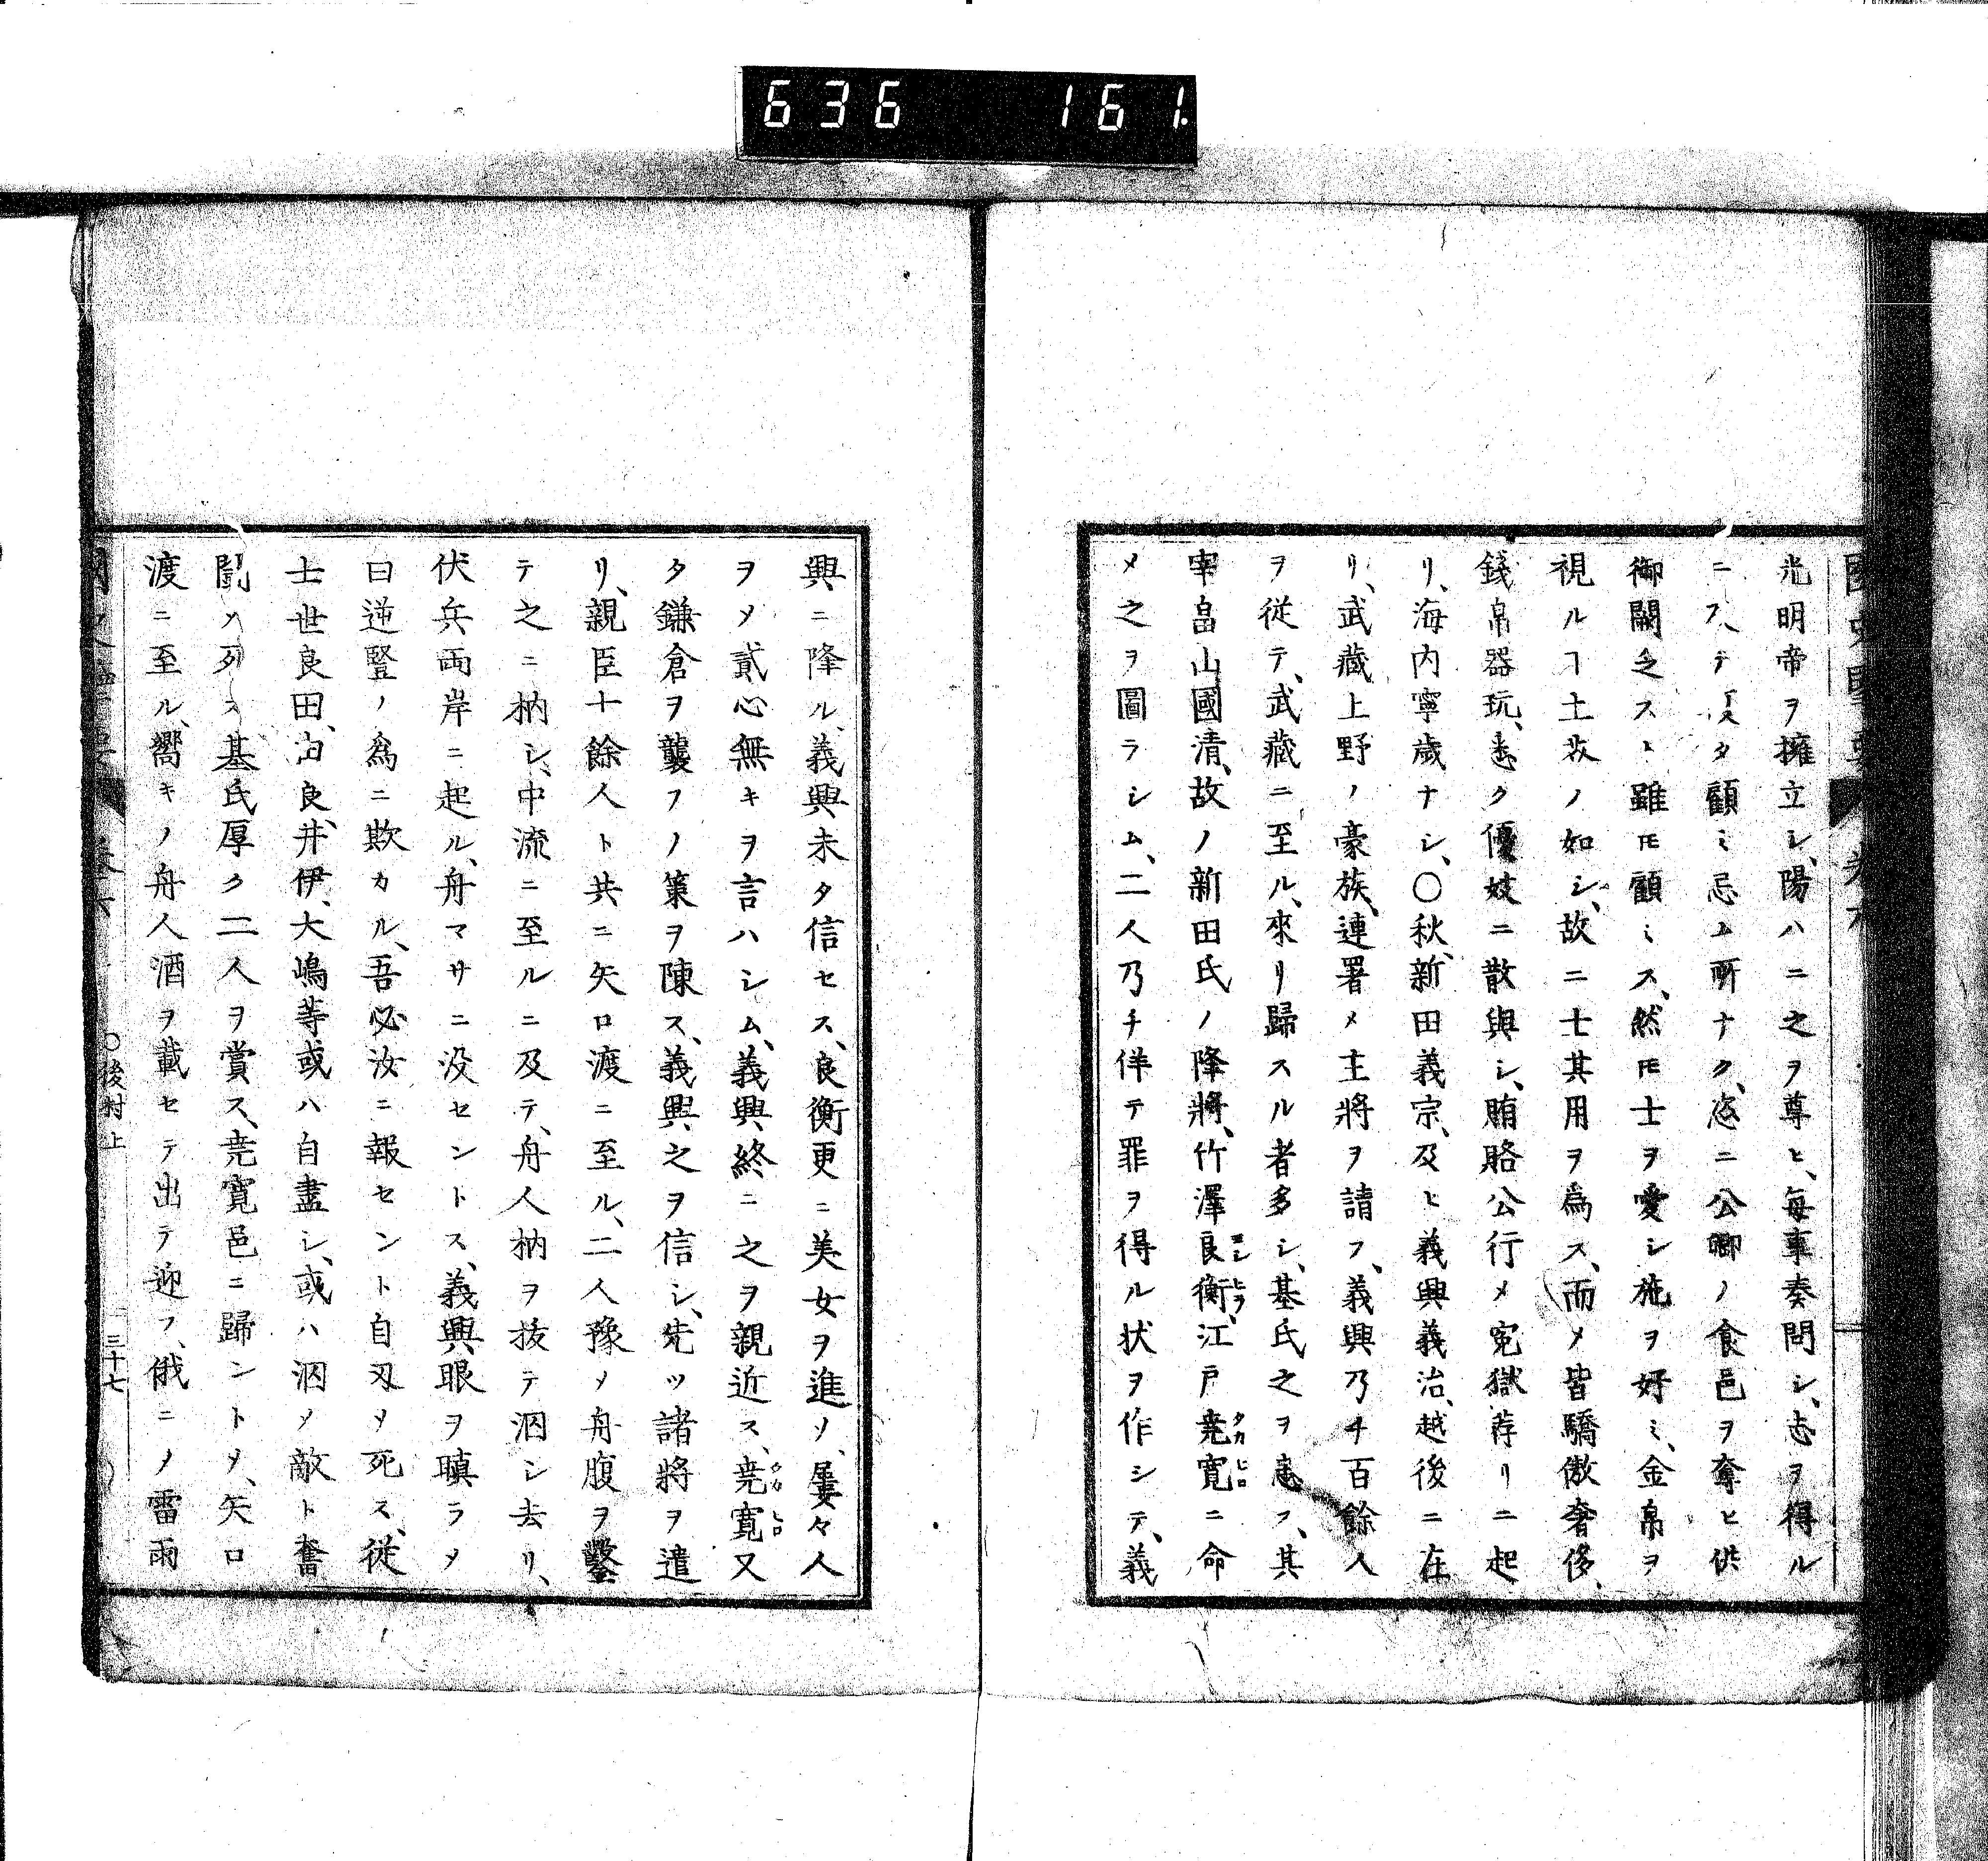 636 161.
光明帝ヲ擁立シ、陽ハニ之ヲ尊ヒ、毎事奏問シ、志ヲ得ル
ニフヘテタ顧ミ忌ム所ナク、恣ニ公卿ノ食邑ヲ奪ヒ供
御闕乏スト雖㆑顧ミス、然㆑士ヲ愛シ施ヲ好ミ、金帛ヲ
視ルヿ土苁ノ如シ、故ニ士其用ヲ為ス、而〆皆驕傲奢侈、
錢帛器玩、悉ク優妓ニ散與シ、賄賂公行〆寃獄荐リニ起
リ、海内寧歳ナシ、〇秋、新田義宗、及ヒ義興義治、越後ニ在
リ、武藏上野ノ豪族、連署〆主將ヲ請フ、義興乃チ百餘人
ヲ従テ、武藏ニ至ル、來リ歸スル者多シ、基氏之ヲ恚フ、其
宰畠山國清、故ノ新田氏ノ降將、竹澤良衡、江戸尭寛ニ命
〆之ヲ圖ラシム、二人乃チ佯テ罪ヲ得ル状ヲ作シテ、義
興ニ降ル、義興未タ信セス、良衡更ニ美女ヲ進ソ、屢々人
ヲ〆貳心無キヲ言ハシム、義興終ニ之ヲ親近ス、尭寛又
タ鎌倉ヲ襲フノ策ヲ陳ス、義興之ヲ信シ、先ツ諸將ヲ遣
リ、親臣十餘人ト共ニ矢口渡ニ至ル、二人豫〆舟腹ヲ鑿
テ之ニ枘シ、中流ニ至ルニ及テ、舟人枘ヲ抜テ泅シ去リ、
伏兵両岸ニ起ル、舟マサニ没セントス、義興眼ヲ瞋ラ〆
曰逆豎ノ為ニ欺カル、吾必汝ニ報セント自刃〆死ス、従
士世良田、由良、井伊、大嶋等或ハ自盡シ、或ハ泅〆敵ト奮
鬪〆死ス基氏厚ク二人ヲ賞ス、尭寛邑ニ歸ントメ、矢口
渡ニ至ル、嚮キノ舟人酒ヲ載セテ出テ迎フ、俄ニ〆雷雨
〇後村上 三十七